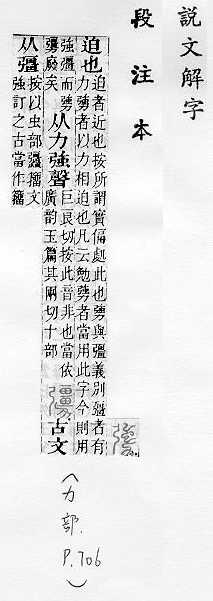 說文解字
段注本
迫也
迫者近也按所謂實偪処此也勥與彊義別彊者有
力勥者以力相迫也凡云勉勥者當用此字今則用
強彊而勥
勥廢矣
从力強聲
巨良切按此音非也當依
廣韵玉篇其兩切十部
古文
从彊
按以虫部籒文
強訂之古當作籒
(力部. P.706)